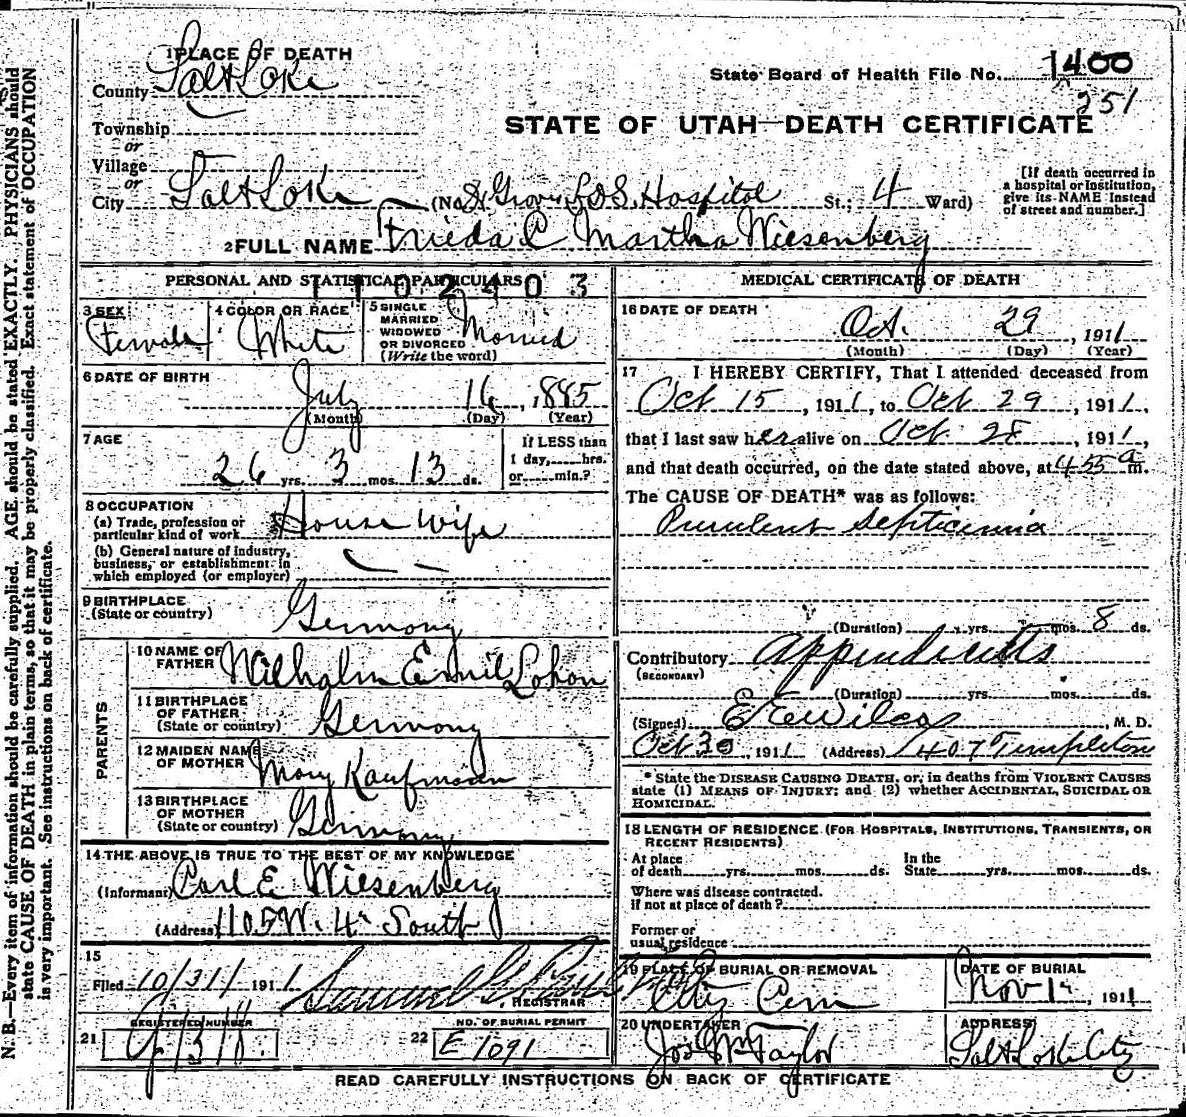 1 PLACE OF DEATH
County Salt Lake
Township
or
Village
or
City Salt Lake (No. 8th Grove L.D.S. Hospital St.; 4 Ward)
[If death occurred in a hospital or institution, give its NAME instead of street and number.]
State Board of Health File No. 1400
251
STATE OF UTAH—DEATH CERTIFICATE
2 FULL NAME Frieda C Martha Wiesenberg
PERSONAL AND STATISTICAL PARTICULARS
1102403
3 SEX Female
4 COLOR OR RACE White
5 SINGLE MARRIED WIDOWED OR DIVORCED (Write the word) Married
6 DATE OF BIRTH
July 16, 1885
(Month) (Day) (Year)
7 AGE
26 yrs. 3 mos. 13 ds.
If LESS than 1 day, hrs. or min.?
8 OCCUPATION
(a) Trade, profession or particular kind of work House Wife
(b) General nature of industry, business, or establishment in which employed (or employer)
9 BIRTHPLACE
(State or country) Germany
PARENTS
10 NAME OF FATHER Wilhelm Emil
11 BIRTHPLACE OF FATHER (State or country) Germany
12 MAIDEN NAME OF MOTHER Mary Kaufmann
13 BIRTHPLACE OF MOTHER (State or country) Germany
14 THE ABOVE IS TRUE TO THE BEST OF MY KNOWLEDGE
(Informant) Carl E Wiesenberg
(Address) 1105 W. 4" South
15
Filed 10/31/ 1911 Samuel G.
REGISTRAR
REGISTERED NUMBER
21
NO. OF BURIAL PERMIT
22 E 1091
MEDICAL CERTIFICATE OF DEATH
16 DATE OF DEATH
Oct. 29, 1911
(Month) (Day) (Year)
17 I HEREBY CERTIFY, That I attended deceased from
Oct 15, 1911, to Oct 29, 1911,
that I last saw her alive on Oct. 28, 1911,
and that death occurred, on the date stated above, at 4 55 a m.
The CAUSE OF DEATH* was as follows:
Purulent Septicemia
(Duration) yrs. mos. 8 ds.
Contributory Appendicitis
(SECONDARY)
(Duration) yrs. mos. ds.
(Signed) E E Wilcox, M. D.
Oct 30, 1911 (Address) 407 Templeton
* State the DISEASE CAUSING DEATH, or, in deaths from VIOLENT CAUSES
state (1) MEANS OF INJURY; and (2) whether ACCIDENTAL, SUICIDAL OR
HOMICIDAL.
18 LENGTH OF RESIDENCE (FOR HOSPITALS, INSTITUTIONS, TRANSIENTS, OR
RECENT RESIDENTS)
At place of death yrs. mos. ds. In the State yrs. mos. ds.
Where was disease contracted. If not at place of death?
Former or usual residence
19 PLACE OF BURIAL OR REMOVAL
City Cem
DATE OF BURIAL
Nov 1st, 1911
20 UNDERTAKER
Jos Wm Taylor
ADDRESS
Salt Lake City
READ CAREFULLY INSTRUCTIONS ON BACK OF CERTIFICATE
N. B.—Every item of information should be carefully supplied. AGE should be stated EXACTLY. PHYSICIANS should
state CAUSE OF DEATH in plain terms, so that it may be properly classified. Exact statement of OCCUPATION
is very important. See instructions on back of certificate.